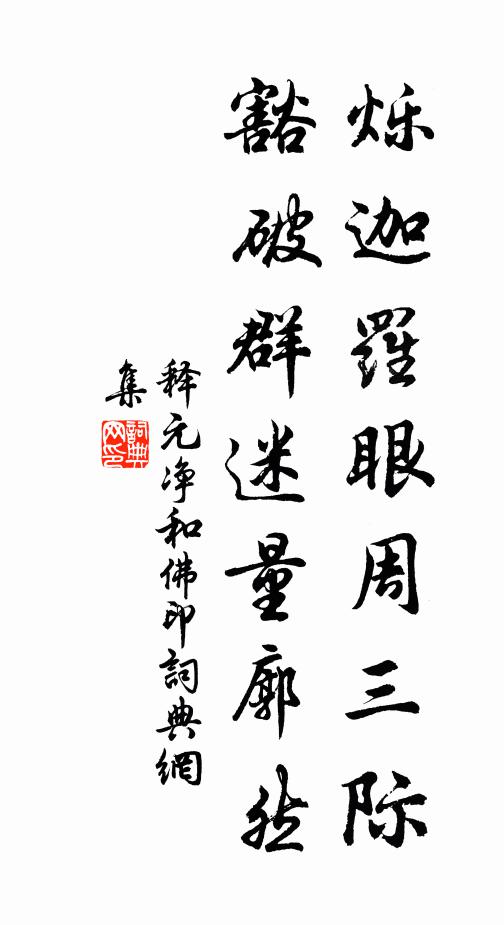 烁迦羅眼周三际
豁破群迷量廓然
释元净和佛印詞典網
集
詞典
网印